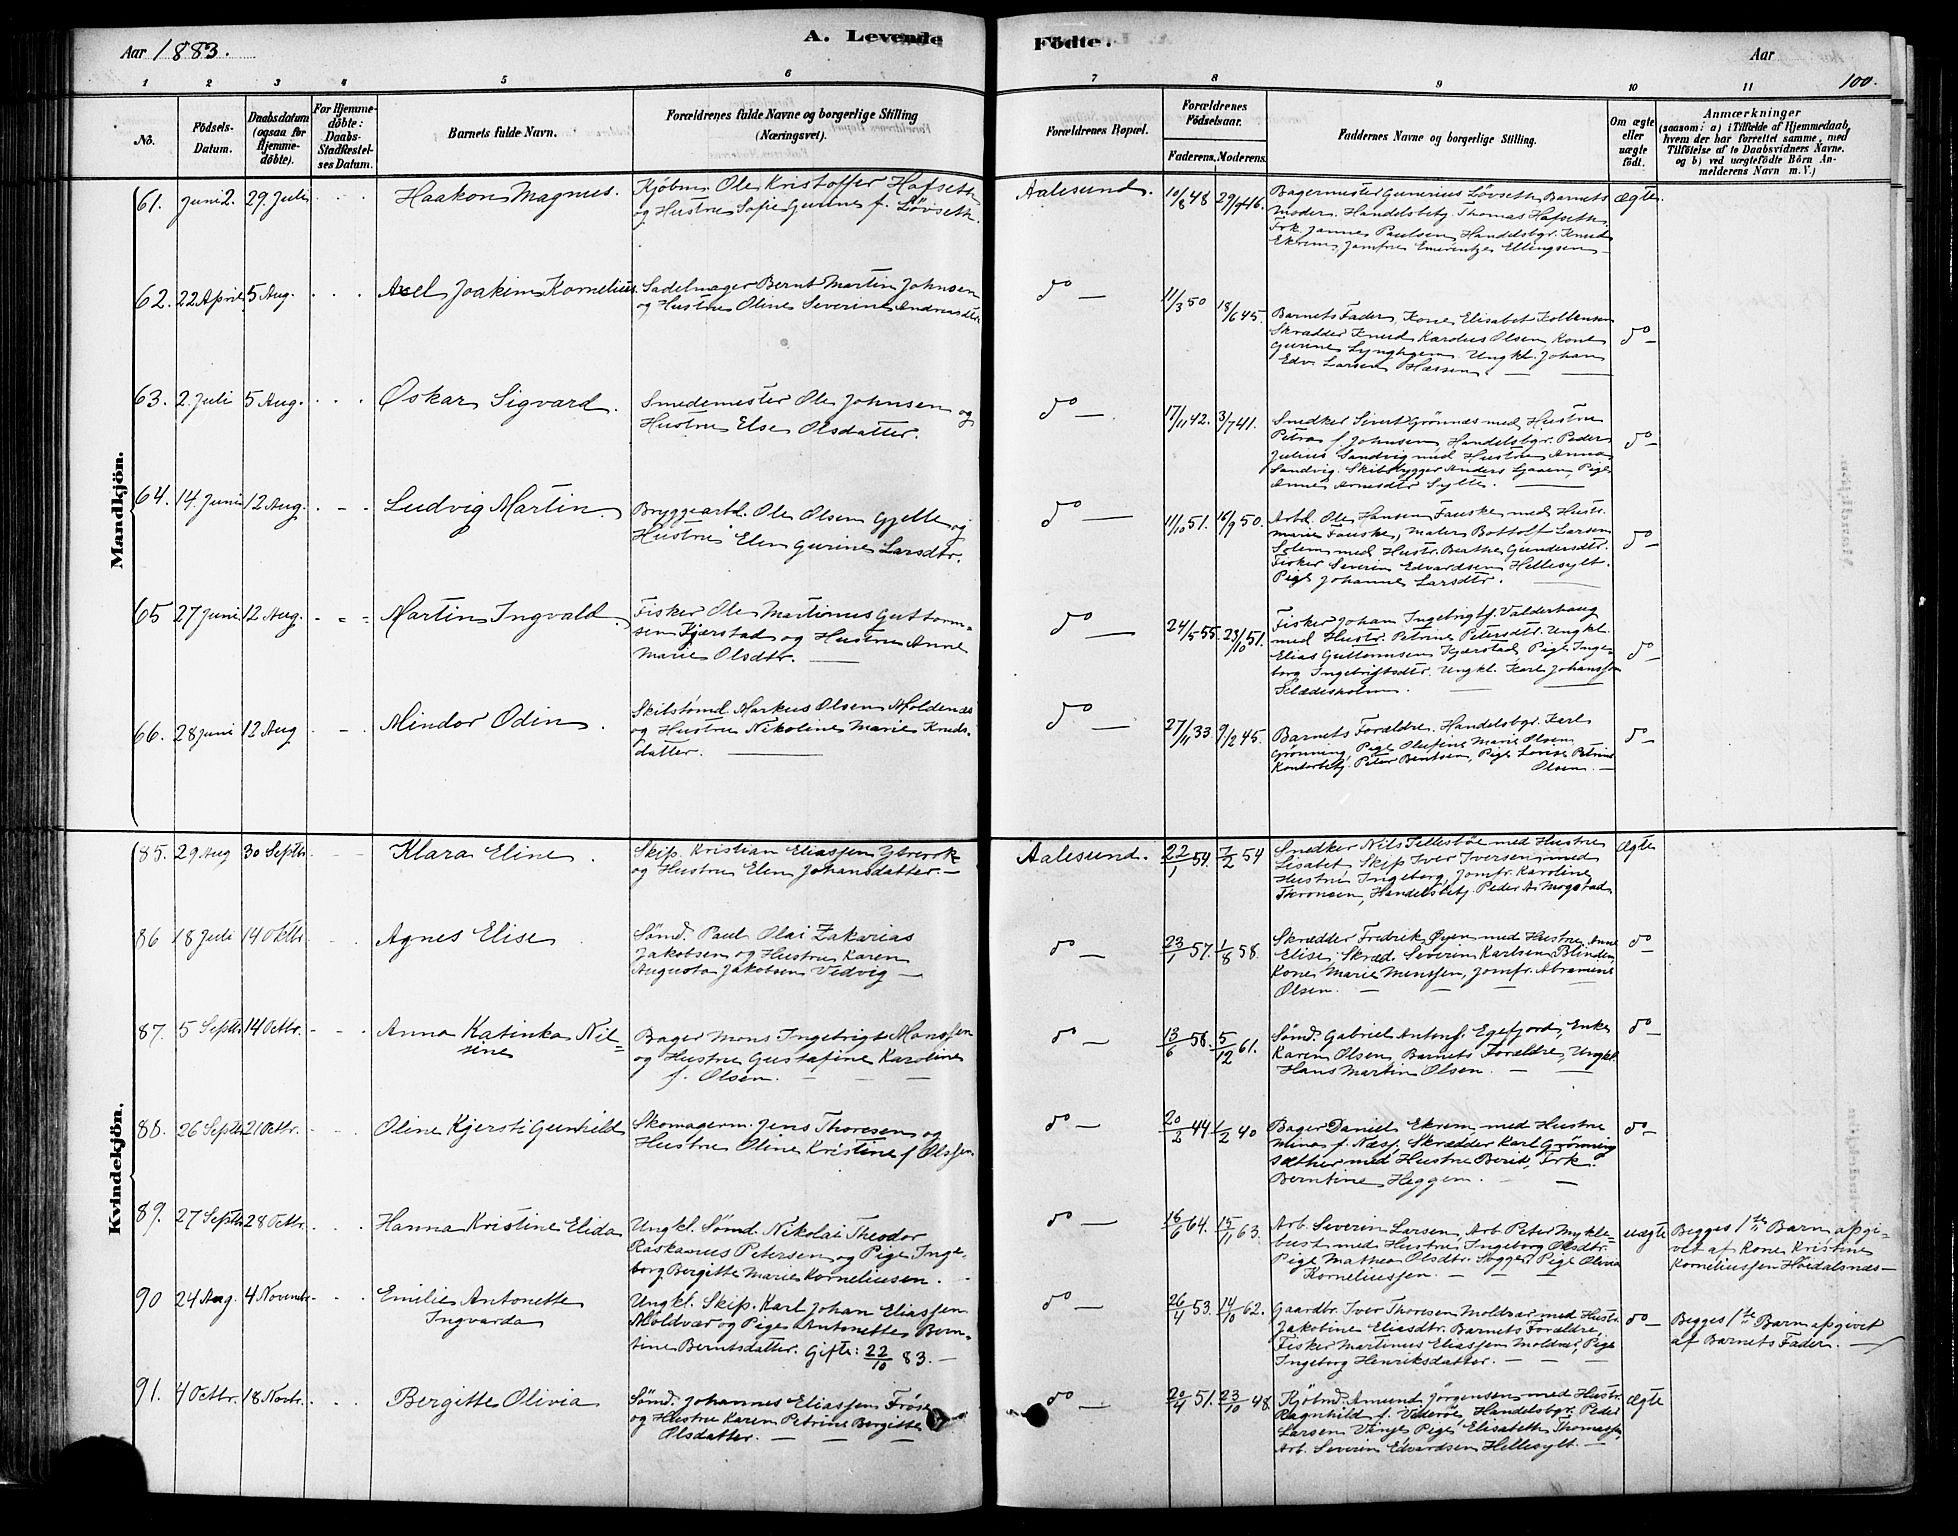 Aar 1883.
A. Levende
Fødte.
Aar
100.
1 2 3 4 5 6 7 8 9 10 11
No.
Födsels-
Datum.
Daabsdatum
(ogsaa for
Hjemme-
döbte).
For Hjemme-
döbte:
Daabs-
Stadfæstel-
ses Datum.
Barnets fulde Navn.
Forældrenes fulde Navne og borgerlige Stilling
(Næringsvei).
Forældrenes Bopæl.
Forældrenes
Födselsaar.
Faderens. Moderens.
Faddernes Navne og borgerlige Stilling.
Om ægte
eller
uægte
födt.
Anmærkninger
(saasom: a) i Tilfælde af Hjemmedaab,
hvem der har forrettet samme, med
Tilföielse af to Daabsvidners Navne.
og b) ved uægtefödte Börn An-
melderens Navn m. V.)
Mandkjön.
61. Juni 2. 29. Juli
Haakon Magnus.
Kjøbm. Ole Kristoffer Hafseth
og Hustru Sofie Gurine f. Løvseth.
Aalesund.
10/8 48 29/9 46.
Bagermester Gunerius Løvseth, Barnets
Moder. Handelsbetj. Thomas Hafseth,
Frk. Janna Paulsen, Handelsbgr. Knud
Ekrem, Jomfru Emerentze Ellingsen
ægte.
62. 22 April 5 Aug.
Axel Joakim Kornelius.
Sadelmager Bernt Martin Johnsen
og Hustru Oline Severine Andreasdtr.
do —
11/3 50 18/6 45.
Barnets Fader, Kone Elisabet Kolbensen
Skrædder Knud Karolus Olsen, Kone
Gurine Lyngheim. Ungkl. Johan
Edv. Larsen Hæssen.
do —
63. 2. Juli 5 Aug.
Oskar Sigvard.
Smedemester Ole Johnsen og
Hustru Else Olsdatter.
do —
17/11 42. 3/7 41.
Snedker Sivert Grønnæs med Hustru
Petra f. Johnsen, Handelsbgr. Peder
Julius Sandvig med Hustru Anna
Sandvig. Skibsbygger Anders Liaaen, Pige
Anne Arnesdtr Sylte.
do —
64. 14. Juni 12 Aug.
Ludvig Martin.
Bryggearbd. Ole Olsen Gjelle og
Hustru Elen Gurine Larsdtr.
do —
11/10 51. 16/9 50.
Arbd. Ole Hansen Fauske med Hustr.
Marie Fauske, Maler Bottolf Larsen
Solem med Hustr. Beathe Gundersdtr.
Fisker Severin Edvardsen Hellesylt.
Pige Johanne Larsdtr.
do —
65 27 Juni 12 Aug.
Martin Ingvald.
Fisker Ole Martinus Guttorm-
sen Kjærstad og Hustru Anne
Marie Olsdtr.
do —
24/5 55. 23/10 51.
Fisker Johan Ingebrigtsf. Valderhaug
med Hustr. Petrine Petersdtr. Ungkl.
Elias Guttormsen Kjærstad, Pige Inge-
borg Ingebrigtsdtr. Ungkl. Karl Johansen
Klædesholm.
do —
66. 28 Juni 12 Aug
Mindor Odin.
Skibstømd. Markus Olsen Moldenæs
og Hustru Nikoline Marie Knuds-
datter.
do —
27/11 33 9/2 45.
Barnets Forældre. Handelsbgr. Karl
Grønning, Pige Olufine Marie Olsen
Kontorbetj. Peter Berntsen, Pige Lovise Petrine
Olsen.
do —
Kvindekjön.
85. 29 Aug 30 Septbr
Klara Eline.
Skip. Kristian Eliassen Ytrevik
og Hustru Elen Johansdatter.
Aalesund.
22/1 54. 7/2 54
Snedker Nils Tellesbøe med Hustru
Lisabet, Skip. Iver Iversen med
Hustru Ingeborg, Jomfr. Karoline
Thronsen, Handelsbetj. Peder A. Mogstad
Ægte
86 18 Juli 14 Oktbr
Agnes Elise
Sømd. Paul Olai Zakarias
Jakobsen og Hustru Karen
Augusta Jakobsen Vedvig
do —
23/1 57. 1/8 58.
Skrædder Fredrik Øyen med Hustru Anne
Elise, Skræd. Severin Karlsen Blinden,
Kone Marie Monssen, Jomfr. Abramine
Olsen.
do —
87. 5 Septbr 14 Octbr.
Anna Katinka Nil-
sine
Bager Mons Ingebrigt Monssen
og Hustru Gustafine Karoline
f. Olsen.
do —
13/6 58. 5/12 61.
Sømd. Gabriel Antonf. Egefjord, Enke
Karen Olsen, Barnets Forældre, Ungkl.
Hans Martin Olsen.
do —
88. 26 Septbr 21 Octbr.
Oline Kjersti Gunhild
Skomagerm. Jens Thoresen og
Hustru Oline Kristine f Olssen
do —
20/2 44 1/2 40
Bager Daniel Ekrem med Hustru
Mina f. Næss, Skrædder Karl Grønning
sæther med Hustru Berit, Frk.
Berntine Heggem.
do —
89. 27 Septbr 28 Octbr.
Hanna Kristine Elida
Ungkl. Sømd. Nikolai Theodor
Raskanus Petersen og Pige Inge-
borg Bergitte Marie Korneliusen.
do —
16/6 64. 15/11 63.
Arb. Severin Larsen, Arb. Peter Mykle-
bust med Hustru Ingeborg Olsdtr.
Pige Mathea Olsdtr. Sogge, Pige Olivia
Korneliussen.
uægte
Begges 1ste Barn, opgi-
vet af Kone Kristine
Korneliussen Høidalsnæs
90 24 Aug. 4 Novembr
Emilie Antonette
Ingvarda
Ungkl. Skip. Karl Johan Eliassen
Moldvær og Pige Antonette Bern-
tine Berntsdatter. Gifte: 22/10 83.
do —
26/4 53. 14/10 62.
Gaardbr. Iver Thoresen Moldvær med Hustr.
Jakobine Eliasdtr. Barnets Forældre,
Fisker Martinus Eliassen Moldvær, Pige
Ingeborg Henriksdatter.
do —
Begges 1ste Barn opgivet
af Barnets Fader.
91. 4 Octbr. 18 Novbr.
Bergitte Olivia
Sømd. Johannes Eliassen Frøse
og Hustru Karen Petrine Bergitte
Olsdatter.
do —
20/4 51. 23/10 48.
Kjøbmd. Amund Jørgensen med Hustr.
Ragnhild f. Vederøe, Handelsbgr. Peder
Larsen Vinje, Pige Elisabeth Thomassen,
Arb. Severin Edvardsen Hellesylt.
Ægte